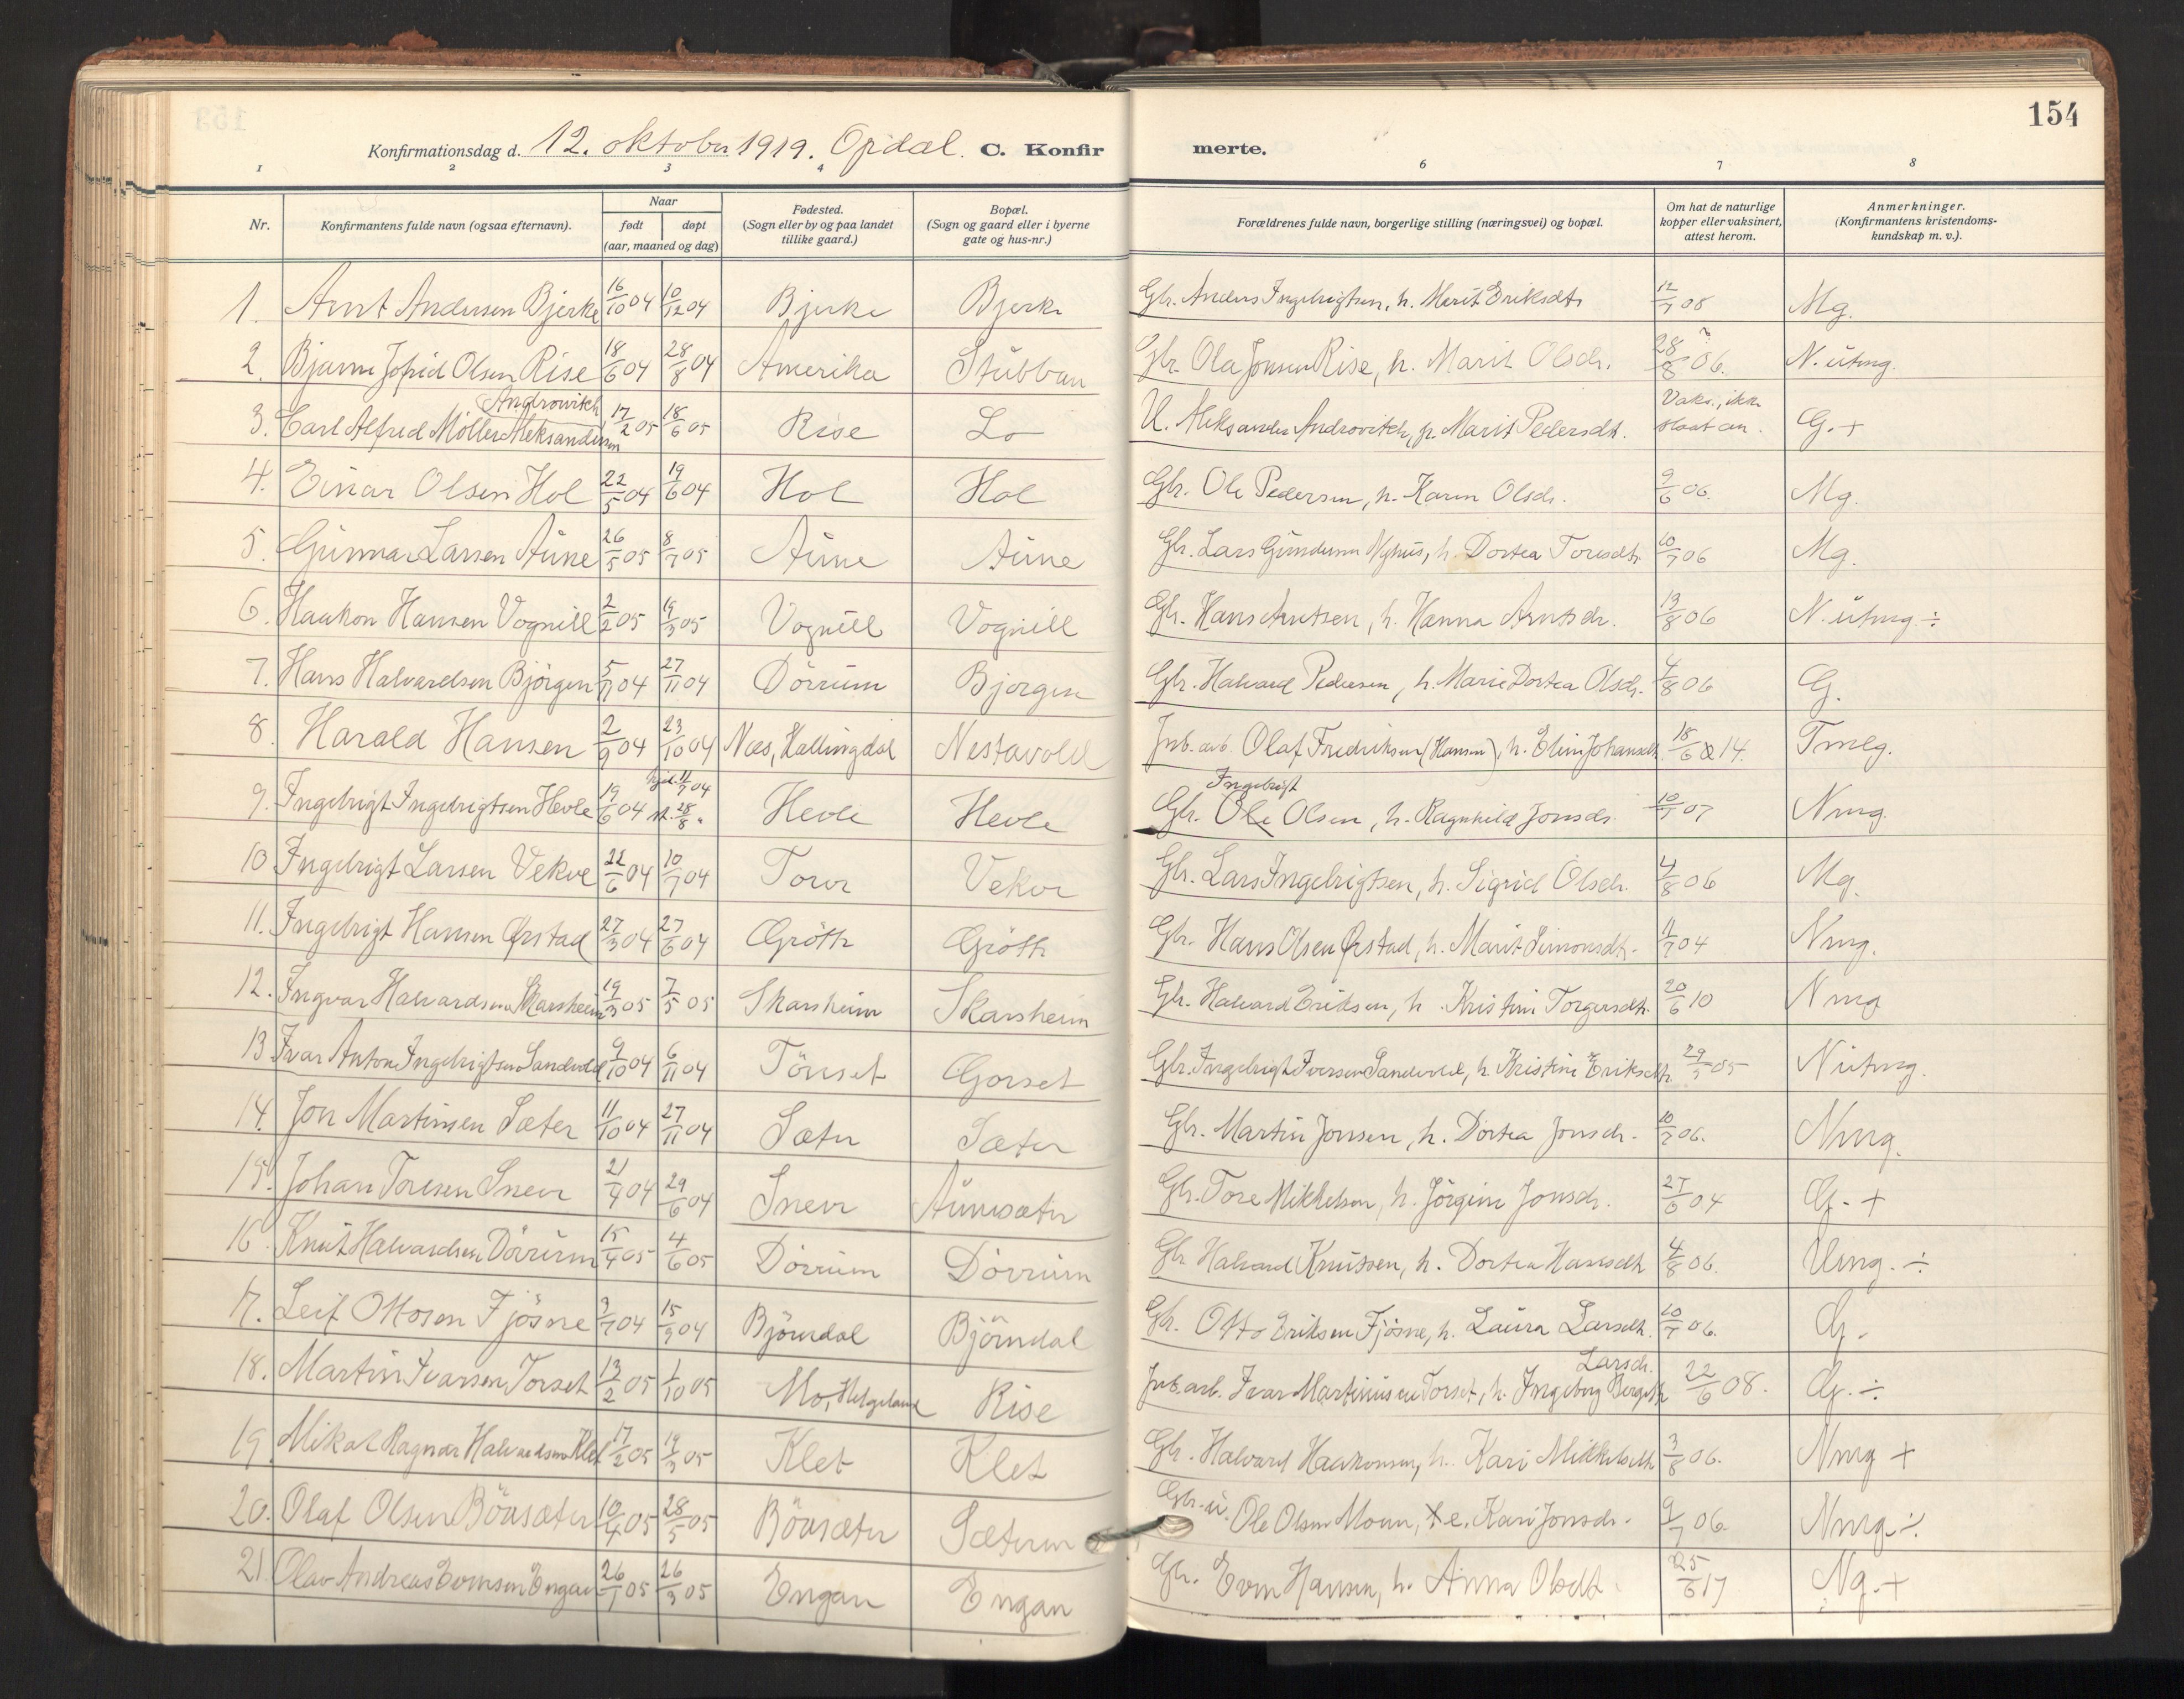 154
Konfirmationsdag d. 12. oktober 1919. Opdal. C. Konfirmerte.
1 2 3 4 6 7 8
Nr. Konfirmantens fulde navn (ogsaa efternavn). Naar født døpt (aar, maaned og dag) Fødested. (Sogn eller by og paa landet tillike gaard.) Bopæl. (Sogn og gaard eller i byerne gate og hus-nr.) Forældrenes fulde navn, borgerlige stilling (næringsvei) og bopæl. Om hat de naturlige kopper eller vaksinert, attest herom. Anmerkninger. (Konfirmantens kristendoms-kundskap m. v.).
1. Arnt Andersen Bjerke 16/10 04 10/12 04 Bjerke Bjerke Gbr. Anders Ingebrigtsen, h. Marit Eriksdtr 12/7 08 Mg.
2. Bjarne Jofrid Olsen Rise 18/6 04 28/8 04 Amerika Stubban Gbr. Ola Jonsen Rise, h. Marit Olsdr. 28/8 06. N. utmg.
3. Carl Alfred Möller Aleksandersen Androwitch 17/2 05 18/6 05 Rise Lo U. Aleksander Androvitch, p. Marit Pedersdt. Vaks., ikke slaat an. G. +
4. Einar Olsen Hol 22/5 04 19/6 04 Hol Hol Gbr. Ole Pedersen, h. Karen Olsdr. 9/6 06. Mg.
5. Gunnar Larsen Aune 26/5 05 8/7 05 Aune Aune Gbr. Lars Gundersen Nyhus, h. Dortea Toresdtr. 10/7 06 Mg.
6. Haakon Hansen Vognill 2/2 05 19/3 05 Vognill Vognill Gbr. Hans Arntsen, h. Hanna Arntsdr. 13/8 06 N. utmg. ÷
7. Hans Halvardsen Björgen 5/11 04 27/11 04 Dörrum Bjorgen Gbr. Halvard Pedersen, h. Marie Dortea Olsdr. 4/8 06 G.
8. Harald Hansen 2/9 04 23/10 04 Næs, Hallingdal Nestavold Jnb. arb. Olaf Fredriksen (Hansen), h. Eline Johansdt. 18/6 14. Tmlg.
9. Ingebrigt Ingebrigtsen Hevle 19/6 04 hjd. 11/7 04 st. 28/8 " Hevle Hevle Gbr. Ole Ingebrigt Olsen, h. Ragnhild Jonsdr. 10/7 07 Nmg.
10. Ingebrigt Larsen Vekve 22/6 04 10/7 04 Torve Vekve Gbr. Lars Ingebrigtsen, h. Sigrid Olsdr. 4/8 06 Mg.
11. Ingebrigt Hansen Ørstad 27/3 04 27/6 04 Grötte Grötte Gbr. Hans Olsen Ørstad, h. Marit Simonsdtr. 11/7 04 Nmg.
12. Ingvar Halvardsen Skarsheim 19/3 05 7/5 05 Skarsheim Skarsheim Gbr. Halvard Eriksen, h. Kristine Torgersdtr. 20/6 10 Nmg
13. Ivar Anton Ingebrigtsen Sandvold 9/10 04 6/11 04 Tönset Gorset Gbr. Ingebrigt Iversen Sandvold, h. Kristine Eriksdtr. 29/5 05 Nutmg.
14. Jon Martinsen Sæter 11/10 04 27/11 04 Sæter Sæter Gbr. Martin Jonsen, h. Dortea Jonsdr. 10/7 06. Nmg.
15. Johan Toresen Sneve 21/4 04 29/6 04 Sneve Aunesæter Gbr. Tore Mikkelsen, h. Jörgine Jonsdr. 27/6 04 G. +
16. Knut Halvardsen Dörrum 15/4 05 4/6 05 Dörrum Dörrum Gbr Halvard Knutsen, h. Dortea Hansdtr 4/8 06. Umg. ÷
17. Leif Ottosen Fjösne 3/7 04 15/9 04 Björndal Björndal Gbr. Otto Eriksen Fjösne, h. Laura Larsdtr. 10/7 06. G.
18. Martin Ivarsen Torset 13/2 05 1/10 05 Mo, Helgeland Rise Jnb. arb. Ivar Martiniussen Torset, h. Ingeborg Larsdr. 22/6 08. G. ÷
19. Mikal Ragnar Halvardsen Klet 17/2 05 19/3 05 Klet Klet Gbr. Halvard Haakonsen, h. Kari Mikkelsdtr 3/8 06. Nmg +
20. Olaf Olsen Böasæter 10/4 05 28/5 05 Böasæter Sæteren Gbr. u. Ole Olsen Moen, e. Kari Jonsdr. 9/7 06. Nmg. ÷
21. Olav Andreas Evensen Engan 26/1 05 26/3 05 Engan Engan Gbr. Even Hansen, h. Anna Olsdt 25/6 17 Ng. +